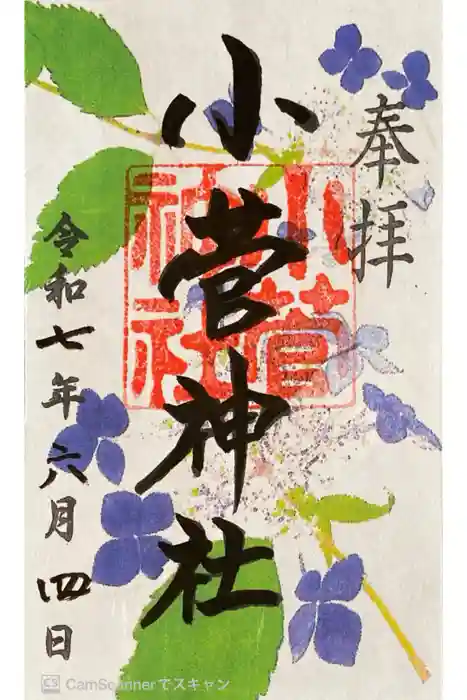 奉拝
小菅神社
小菅神社
令和七年六月四日
CS CamScannerでスキャン